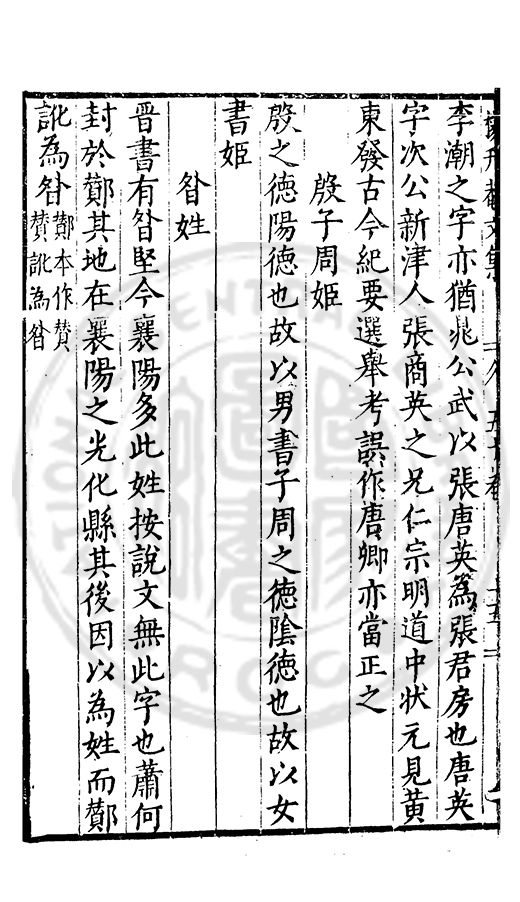 李潮之字亦猶晁公武以張唐英為張君房也唐英
字次公新津人張商英之兄仁宗明道中狀元見黃
東發古今紀要選舉考誤作唐卿亦當正之
殷子周姬
殷之德陽德也故以男書子周之德陰德也故以女
書姬
昝姓
晉書有昝堅今襄陽多此姓按說文無此字也蕭何
封於酇其地在襄陽之光化縣其後因以為姓而酇
訛為昝酇本作贊
贊訛為昝